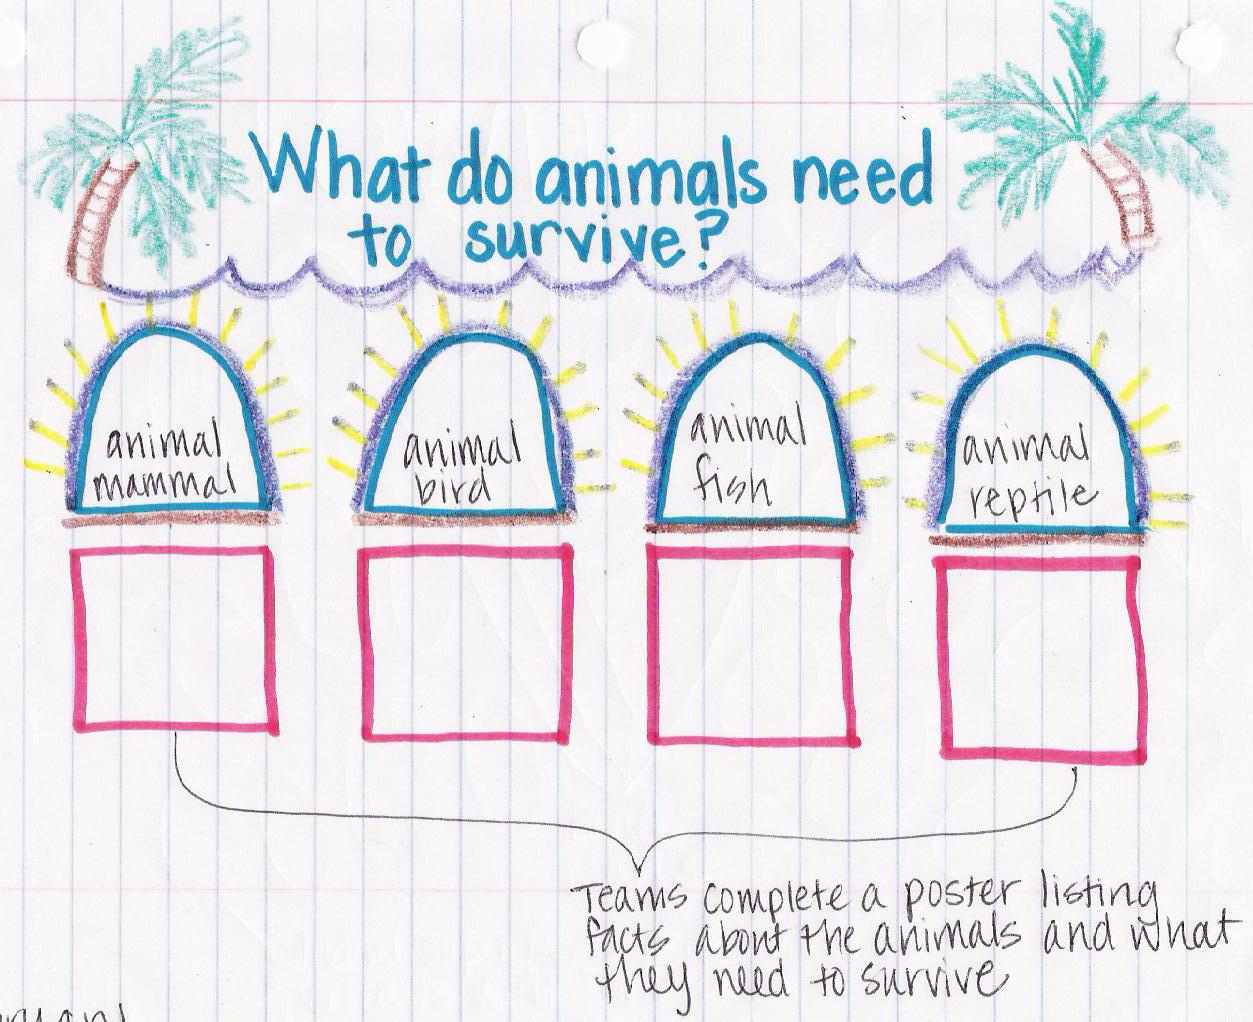 What do animals need
to survive?
animal
mammal
animal
bird
animal
fish
animal
reptile
Teams complete a poster listing
facts about the animals and what
they need to survive